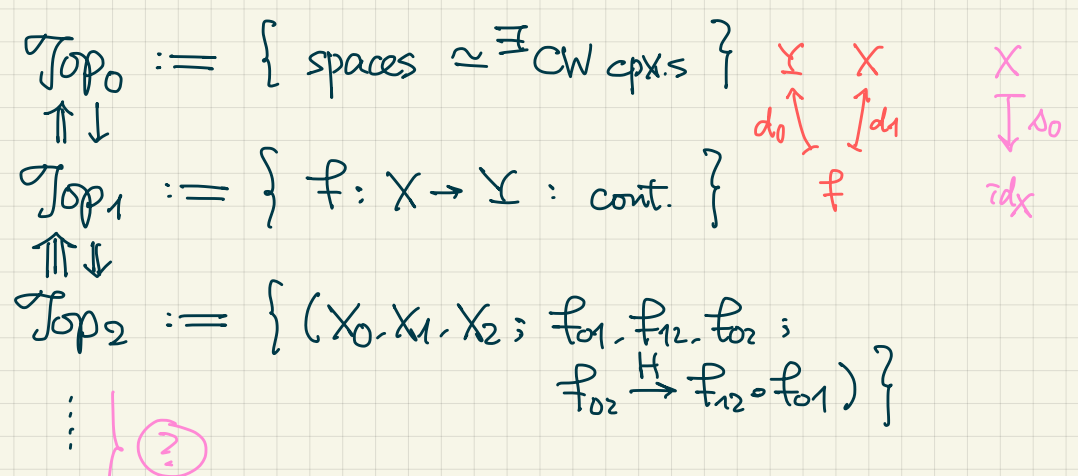 Top₀ := { spaces ≃ ∃ CW cpx.s } Y X X
⇈ ↓ d₀ d₁ s₀
Top₁ := { f : X → Y : cont. } f id_X
Top₂ := { (X₀, X₁, X₂ ; f₀₁, f₁₂, f₀₂ ;
f₀₂ →^H f₁₂ ∘ f₀₁ ) }
⋮ } ?